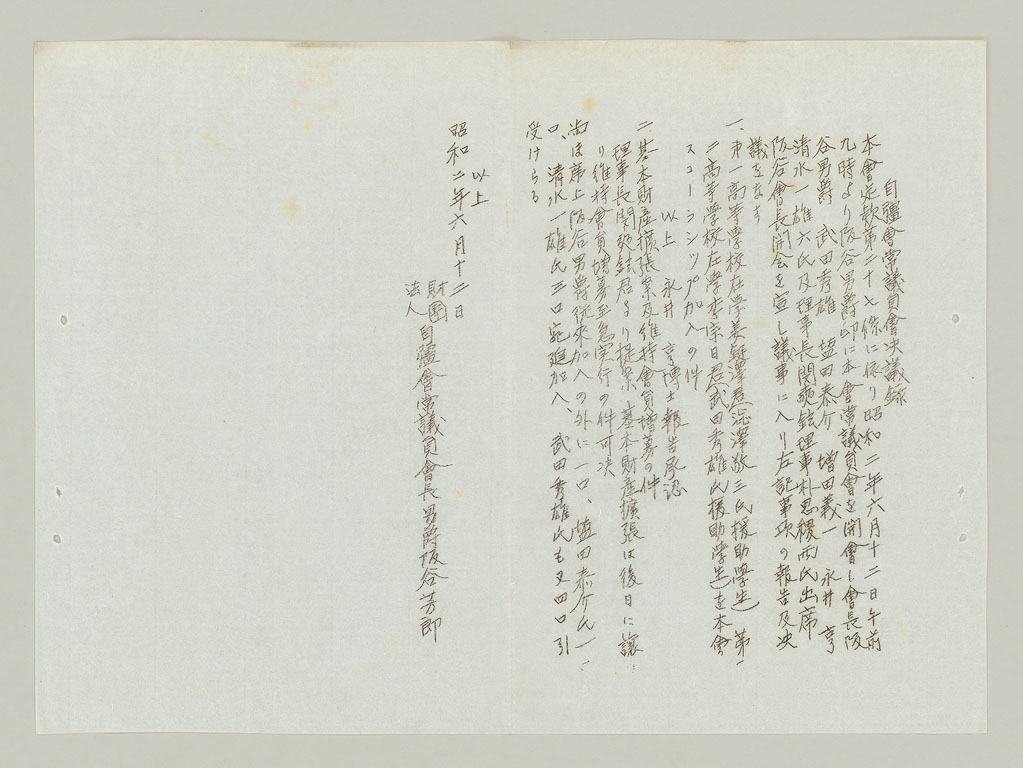 自疆會常議員會決議錄
本會定款第二十七條に依り昭和二年六月十二日午前
九時より阪谷男爵邸に本會常議員會を開會し會長阪
谷男爵 武田秀雄 塩田泰介 增田義一 永井 亨
清水一雄六氏及理事長閔 理事朴思稷両氏出席
阪谷會長開会を宣し議事に入り左記事項の報告及決
議をなす
一、第一高等學校在學姜 澤 澁澤敬三氏援助學生 第
二高等學校在學李宗日君武田秀雄氏援助學生を本會
スコーラシップ加入の件
以上 永井 亨博士報告承認
二 基本財産擴張案及維持會員增募の件
理事長閔 鉉君より提案 基本財産擴張は後日に讓
り維持會員增募至急実行の件可決
尚ほ席上阪谷男爵従来加入の外に一口、塩田泰介氏一
口、清水一雄氏三口宛追加入、武田秀雄氏も又四口引
受けらる
以上
昭和二年六月十二日
財團
法人 自疆會常議員會長男爵阪谷芳郎